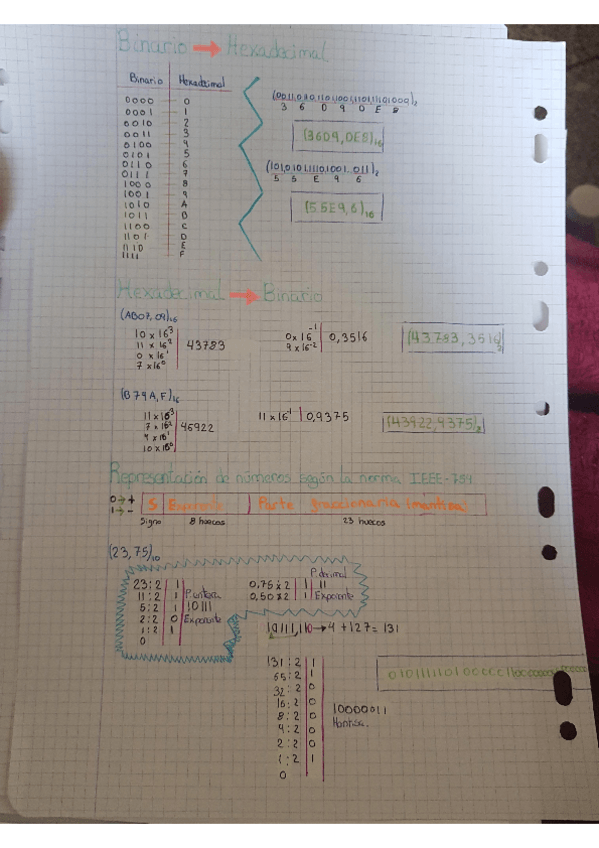 Binario → Hexadecimal
Binario Hexadecimal
0000 0
0001 1
0010 2
0011 3
0100 4
0101 5
0110 6
0111 7
1000 8
1001 9
1010 A
1011 B
1100 C
1101 D
1110 E
1111 F
3 6 0 9 0 E 8
(3609,0E8)₁₆
(101,0101,1110,1001,011)₂
5 5 E 9 6
(55E9,6)₁₆
Hexadecimal → Binario
(AB07,09)₁₆
10 x 16³
11 x 16²
0 x 16¹
7 x 16⁰
43783
0 x 16⁻¹
9 x 16⁻²
0,3516
(43.783,3516)
(B79A,F)₁₆
11 x 16³
7 x 16²
9 x 16¹
10 x 16⁰
46922
11 x 16⁻¹ 0,9375
(43922,9375)
Representación de números según la norma IEEE-754
0 → +
1 → -
S Exponente Parte fraccionaria (mantisa)
Signo 8 huecos 23 huecos
(23,75)₁₀
23:2 1
11:2 1
5:2 1
2:2 0
1:2 1
0
P. entera
10111
Exponente
P. decimal
0,75 x 2 1 11
0,50 x 2 1 Exponente
10111,110 → 4 + 127 = 131
131:2 1
65:2 1
32:2 0
16:2 0
8:2 0
4:2 0
2:2 0
1:2 1
0
10000011
Mantisa.